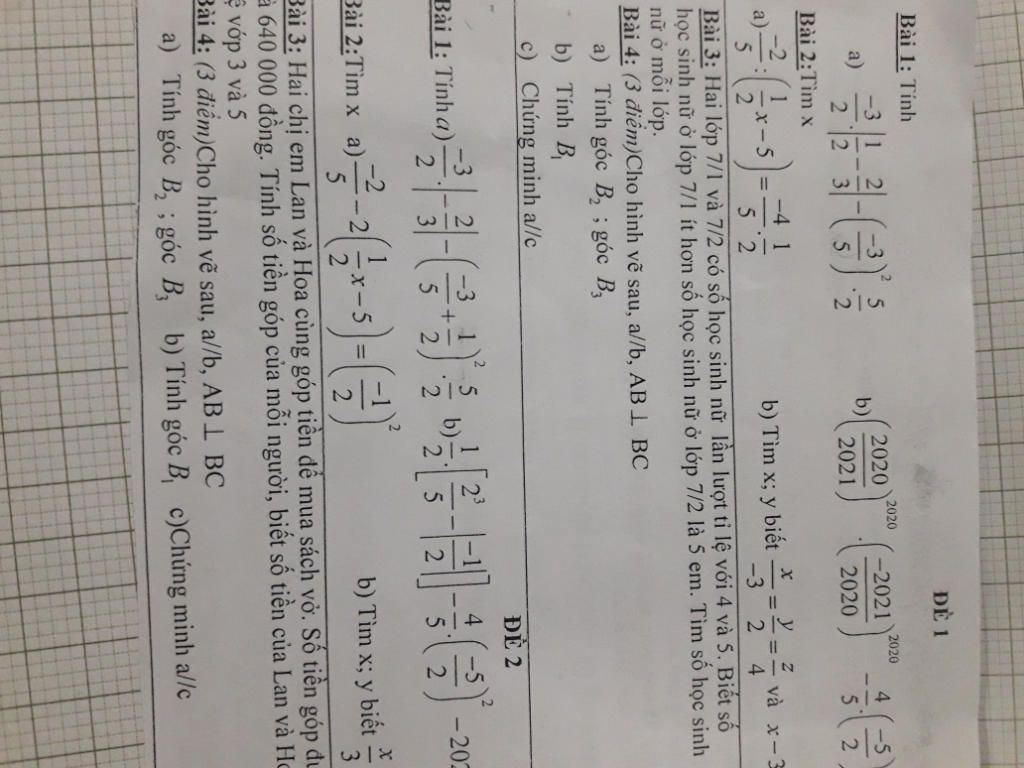 ĐỀ 1
Bài 1: Tính
a) \frac{-3}{2}.\left|\frac{1}{2}-\frac{2}{3}\right|-\left(\frac{-3}{5}\right)^2.\frac{5}{2} b)\left(\frac{2020}{2021}\right)^{2020}.\left(\frac{-2021}{2020}\right)^{2020}-\frac{4}{5}.\left(\frac{-5}{2}
Bài 2:Tìm x
a)\frac{-2}{5}:\left(\frac{1}{2}x-5\right)=\frac{-4}{5}.\frac{1}{2} b) Tìm x; y biết \frac{x}{-3}=\frac{y}{2}=\frac{z}{4} và x-3
Bài 3: Hai lớp 7/1 và 7/2 có số học sinh nữ lần lượt tỉ lệ với 4 và 5. Biết số
học sinh nữ ở lớp 7/1 ít hơn số học sinh nữ ở lớp 7/2 là 5 em. Tìm số học sinh
nữ ở mỗi lớp.
Bài 4: (3 điểm)Cho hình vẽ sau, a//b, AB ⊥ BC
a) Tính góc B₂ ; góc B₃
b) Tính B₁
c) Chứng minh a//c
ĐỀ 2
Bài 1: Tính a) \frac{-3}{2}.\left|-\frac{2}{3}\right|-\left(\frac{-3}{5}+\frac{1}{2}\right)^2.\frac{5}{2} b)\frac{1}{2}.\left[\frac{2^3}{5}-\left|\frac{-1}{2}\right|\right]-\frac{4}{5}.\left(\frac{-5}{2}\right)^2-202
Bài 2:Tìm x a)\frac{-2}{5}-2\left(\frac{1}{2}x-5\right)=\left(\frac{-1}{2}\right)^2 b) Tìm x; y biết \frac{x}{3}
Bài 3: Hai chị em Lan và Hoa cùng góp tiền để mua sách vở. Số tiền góp đư
à 640 000 đồng. Tính số tiền góp của mỗi người, biết số tiền của Lan và Ho
ệ vớp 3 và 5
Bài 4: (3 điểm)Cho hình vẽ sau, a//b, AB ⊥ BC
a) Tính góc B₂ ; góc B₃ b) Tính góc B₁ c)Chứng minh a//c